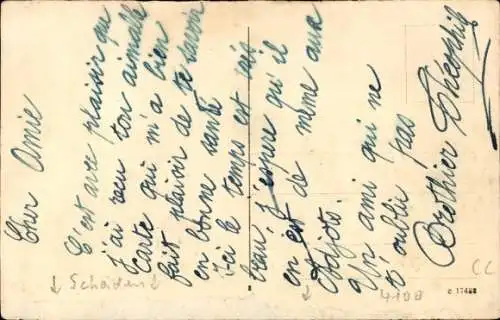 Cher Amie
C'est avec plaisir que
j'ai reçu ton aimable
carte qui m'a bien
fait plaisir de te savoir
en bonne santé
Ici le temps est très
beau, j'espère qu'il
en est de même aux
Adjots.
Un ami qui ne
t'oublie pas
Brothier Théophile
Schaiden
4100
c 17428
CC